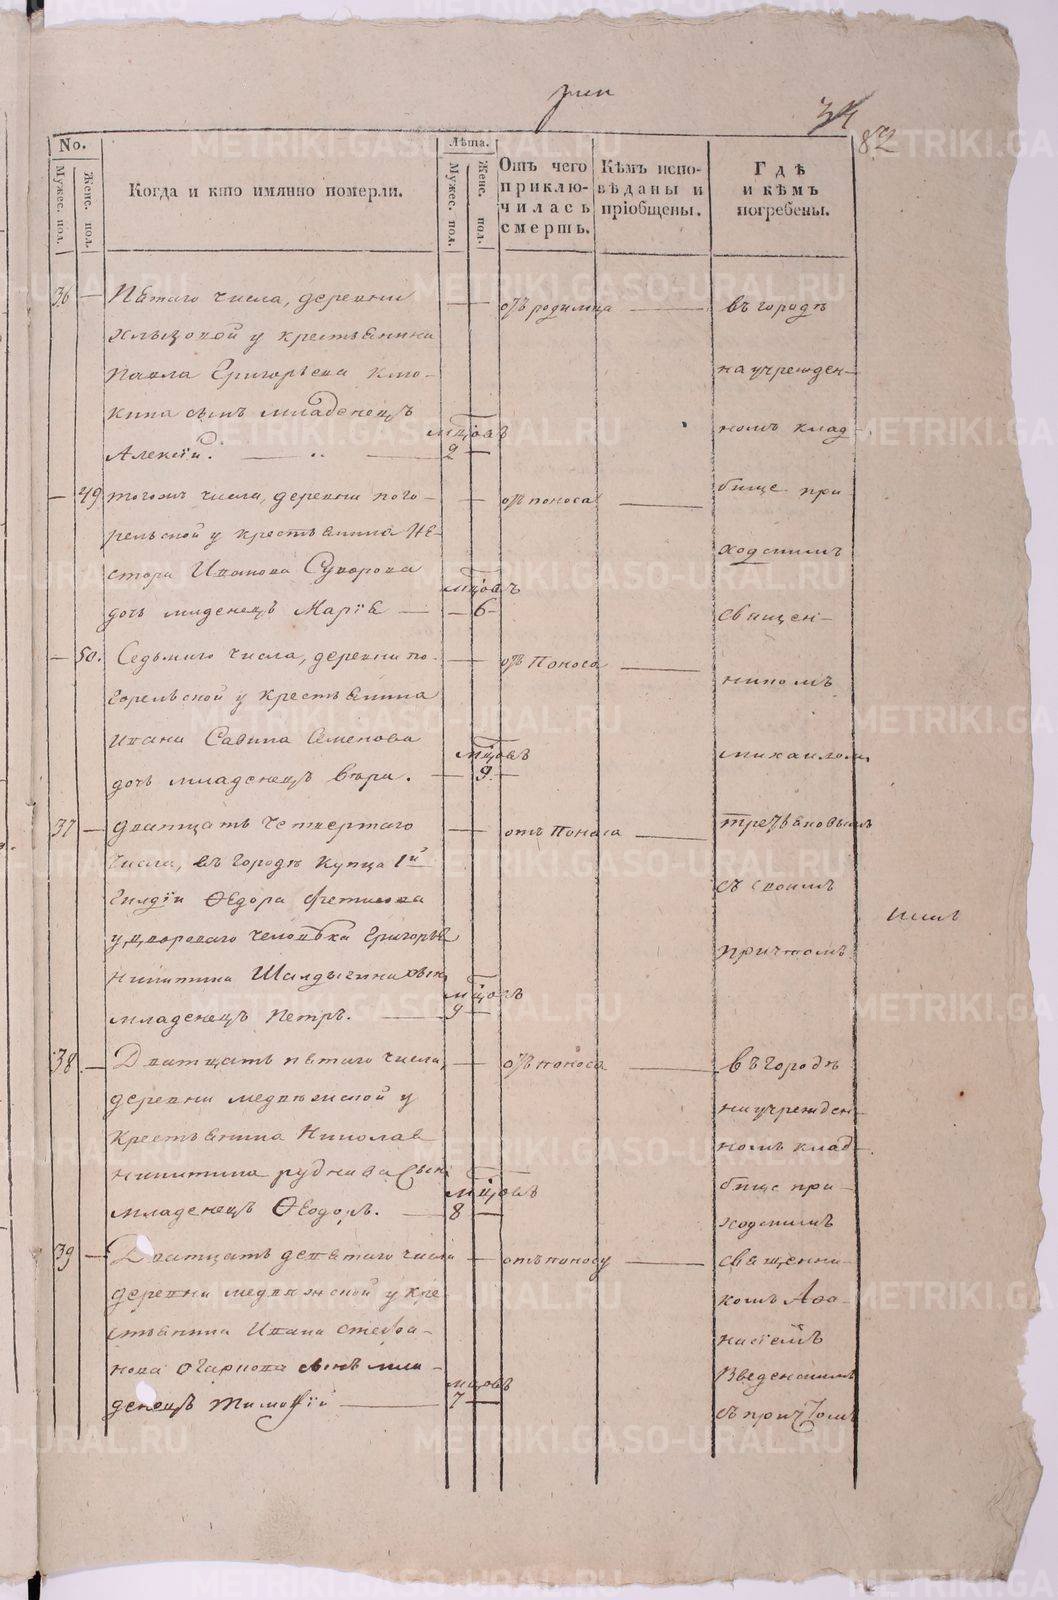 34
82
No.
Мужес. пол.
Женс. пол.
Когда и кто имянно померли.
Лѣта.
Мужес. пол.
Женс. пол.
Отъ чего
приклю-
чилась
смерть.
Кѣмъ испо-
вѣданы и
пріобщены.
Гдѣ
и кѣмъ
погребены.
36 — Пятаго числа, деревни
у крестьянина
Павла Григорьева Клю-
кина сынъ младенецъ
Алексій.
мцовъ
2
отъ родимца
въ городѣ
на учрежден-
номъ клад-
бище при
ходскимъ
священ-
никомъ
михаиломъ
трезвяновымъ
съ своимъ
причтомъ
— 49 тогожъ числа, деревни пого-
рельской у крестьянина Не-
стора Иванова Суворова
дочь младенецъ Марія
мцовъ
6
отъ поноса
— 50. Седьмаго числа, деревни по-
горельской у крестьянина
Ивана Савина Семенова
дочь младенецъ Вера.
мцовъ
9
отъ Поноса
37 — дватцать четвертаго
числа, въ городѣ купца 1й
Гилдіи Ѳедора
у двороваго человѣка Григорья
никитина Шалдыгина сынъ
младенецъ Петръ.
мцовъ
9
отъ Поноса
38 — Дватцать пятаго числа,
деревни медвежской у
Крестьянина Николая
никитина руднева Сынъ
младенецъ Ѳеодоръ.
мцовъ
8
отъ поноса
въ городѣ
на учрежден-
номъ клад-
бище при-
ходскимъ
священни-
комъ Аѳа-
насіемъ
Введенскимъ
съ причтомъ
39 — Дватцать девятаго числа
деревни медвежской у кре-
стьянина Ивана степа-
нова огаркова сынъ мла-
денецъ тимоѳій
мцовъ
7
отъ поносу